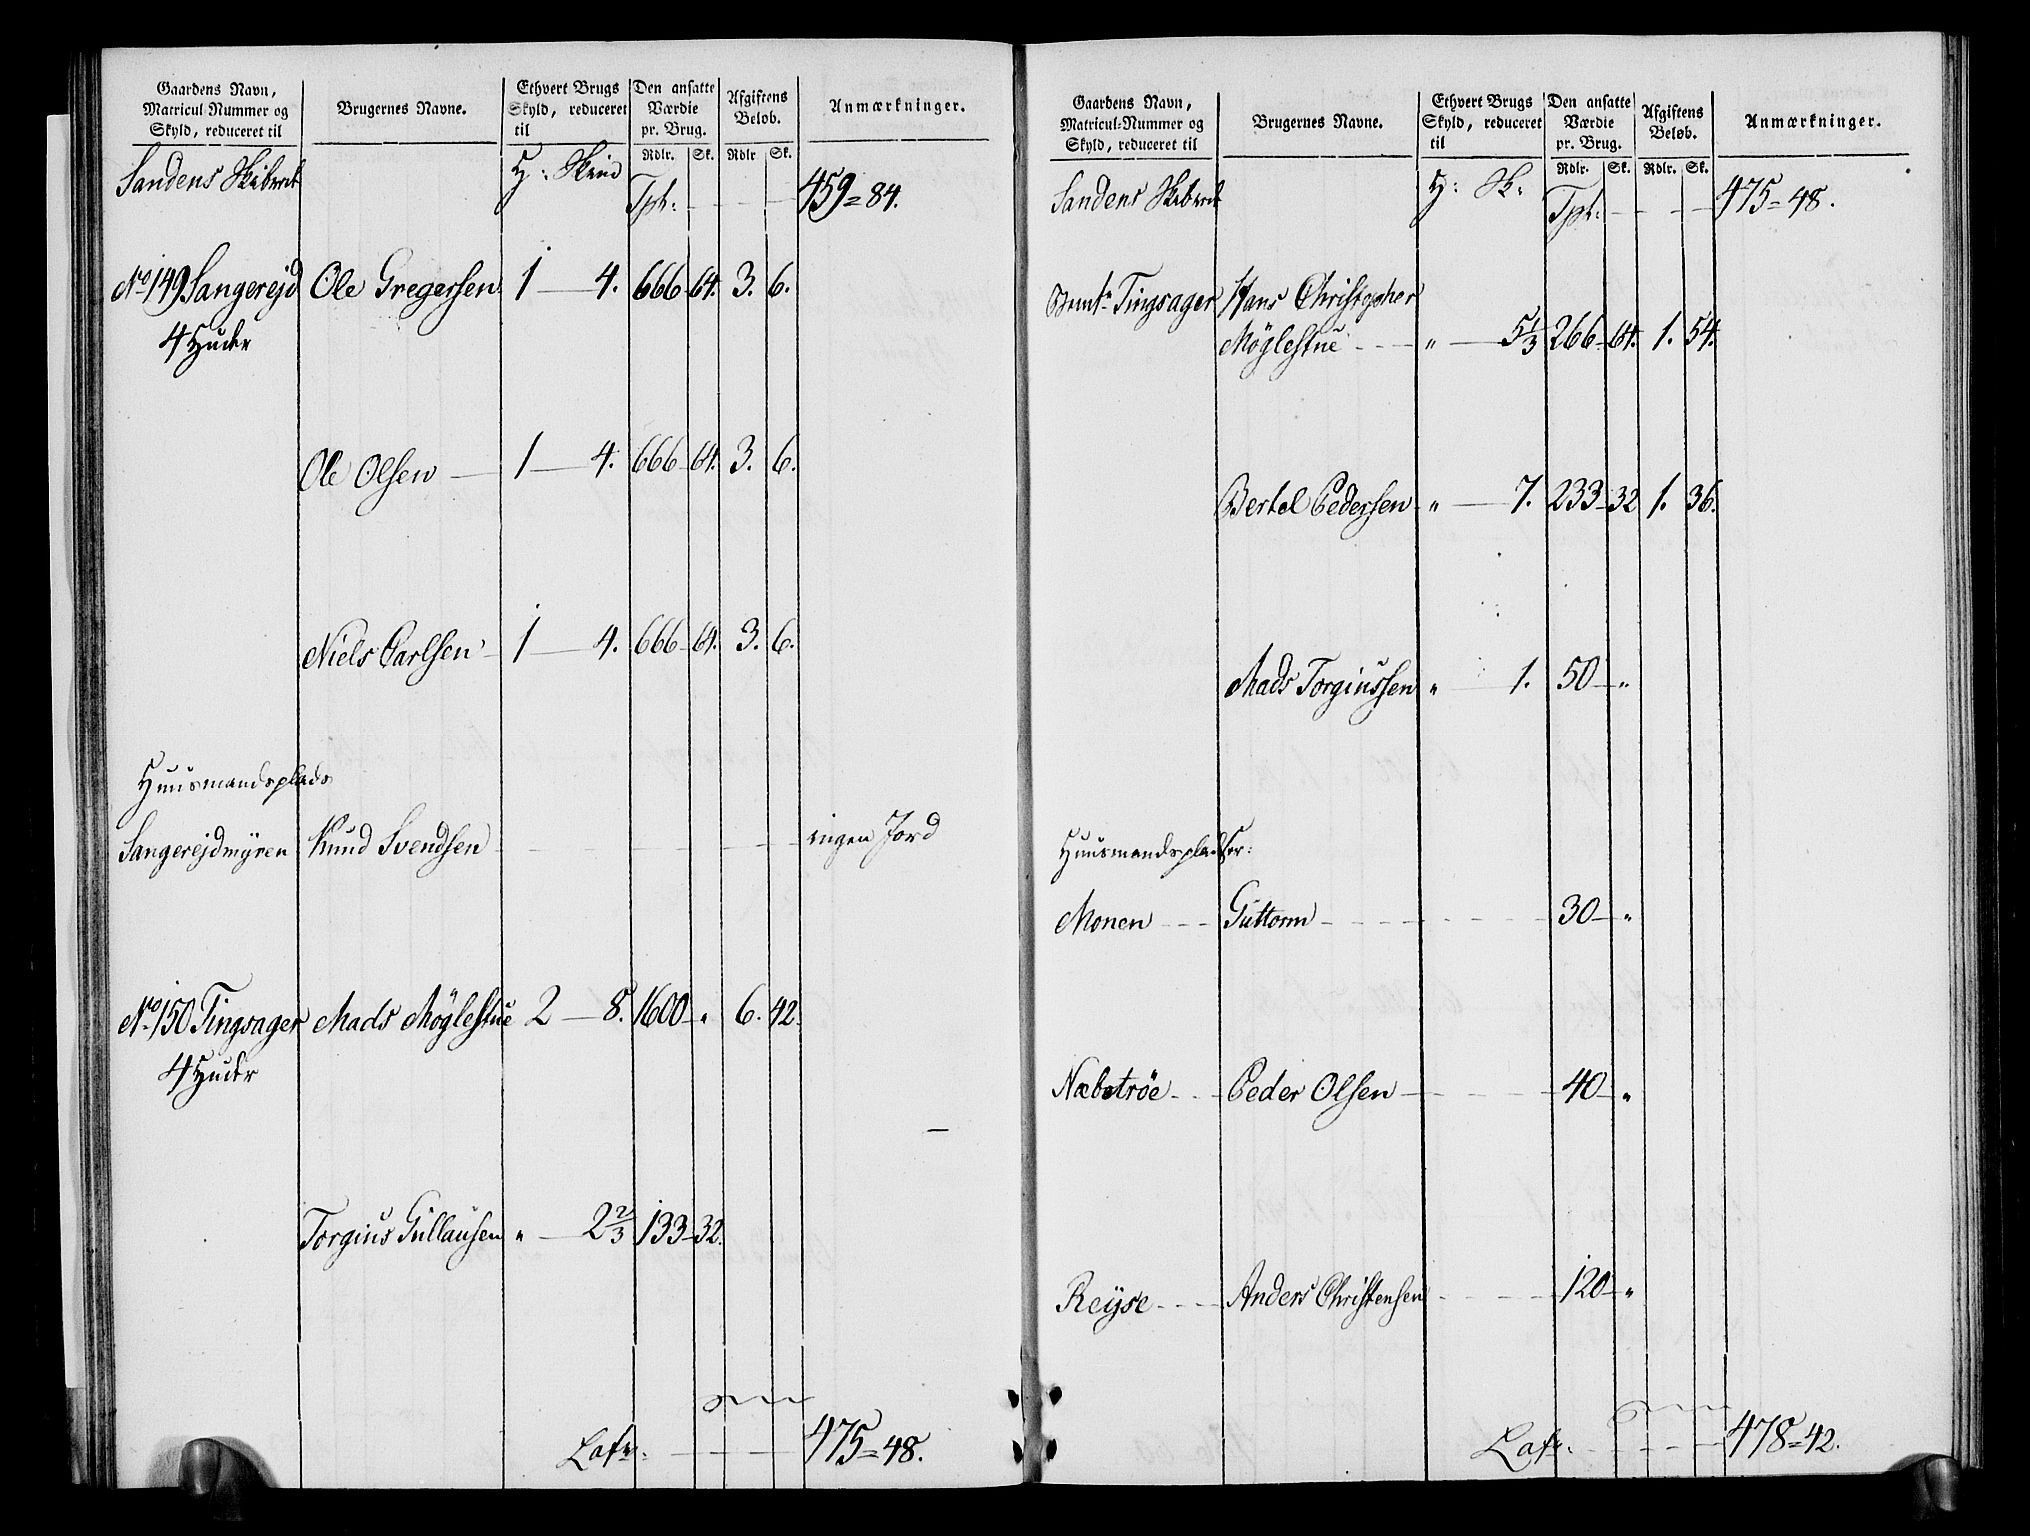 Gaardens Navn, Matricul-Nummer og Skyld, reduceret til | Brugernes Navne. | Ethvert Brugs Skyld, reduceret til | Den ansatte Værdie pr. Brug. | Afgiftens Beløb. | Anmærkninger.
Rdlr. Sk. Rdlr Sk.
Sandens Skibred H: Skind Tpt: 459=84.
No 149 Sangerejd Ole Gregersen 1 4. 666 64. 3. 6.
4 Huder
Ole Olsen 1 4. 666 64. 3. 6.
Niels Carlsen 1 4. 666 64. 3. 6.
Huusmandsplads
Sangerejdmyren Knud Svendsen ingen Jord
No 150 Tingsager Mads Møglestue 2 8. 1600 " 6. 42.
4 Huder
Torgius Gullausen " 2 2/3 133 32.
Lafr: 475=48.
Gaardens Navn, Matricul-Nummer og Skyld, reduceret til | Brugernes Navne. | Ethvert Brugs Skyld, reduceret til | Den ansatte Værdie pr. Brug. | Afgiftens Beløb. | Anmærkninger.
Rdlr. Sk. Rdlr. Sk.
Sandens Skibred H: Sk: Tpt: 475=48.
Tingsager Hans Christopher
Møglestue " 5 1/3 266 64. 1. 54.
Bertel Pedersen " 7. 233 32 1. 36.
Mads Torgiussen " 1. 50 "
Huusmandspladser:
Monen Guttorm 30 "
Næbstrøe Peder Olsen 40 "
Reyse Anders Christensen 120 "
Lafr: 478=42.